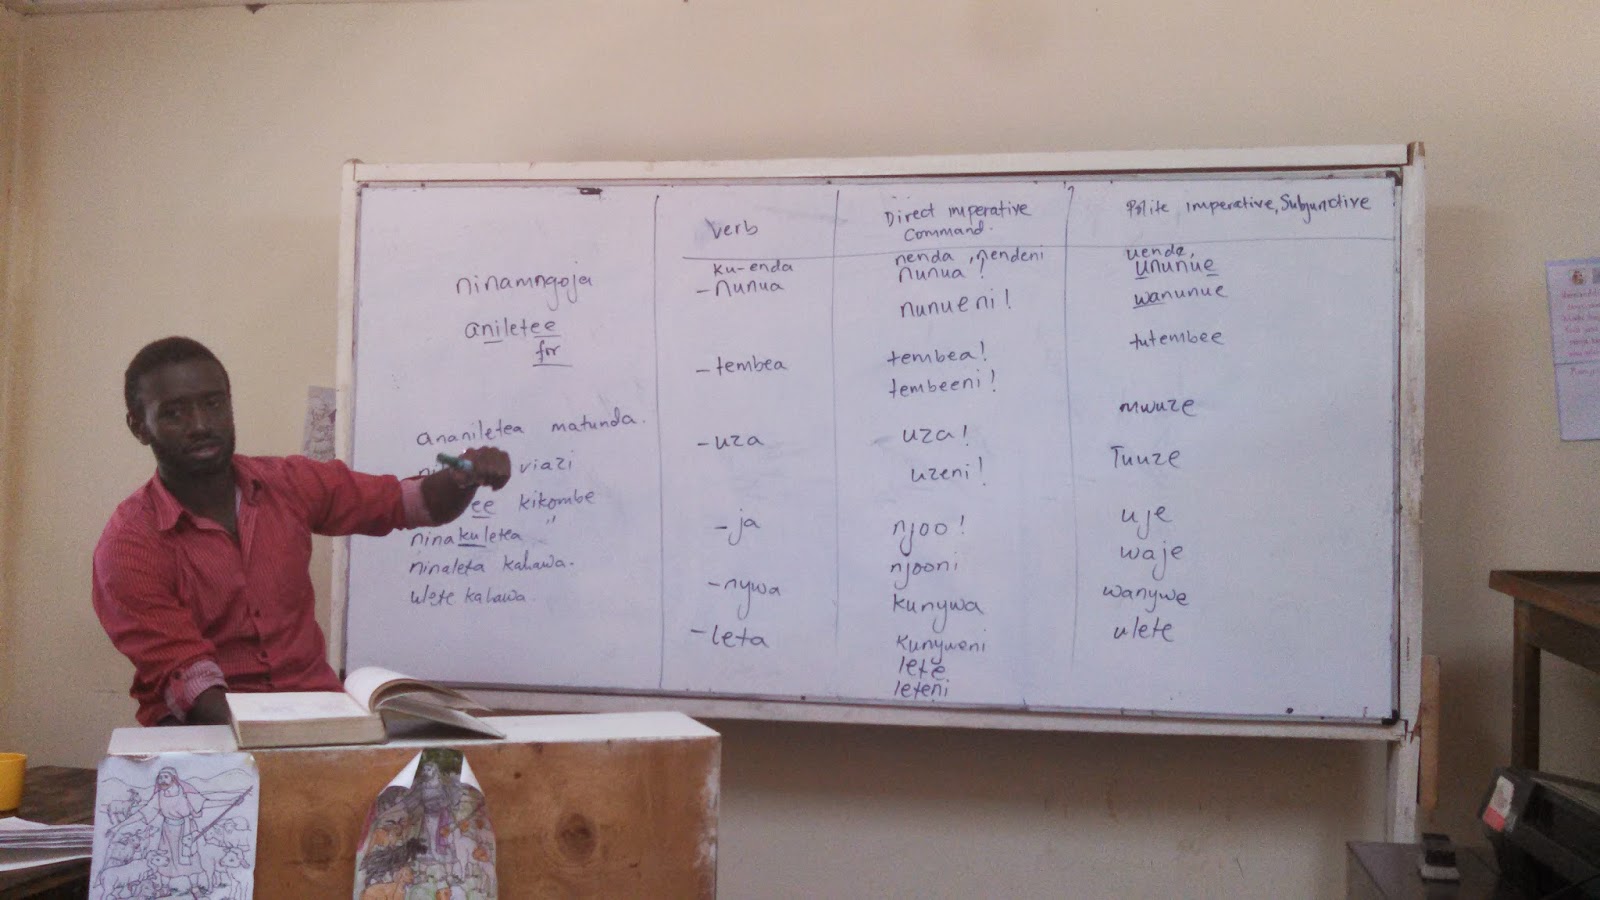 ninamngoja
aniletee
for
ananiletea matunda.
viazi
ee kikombe
ninakuletea "
ninaleta kahawa.
ulete kahawa.
Verb
ku-enda
- nunua
- tembea
- uza
- ja
- nywa
- leta
Direct imperative
Command.
nenda , nendeni
nunua !
nunueni !
tembea !
tembeeni !
uza !
uzeni !
njoo !
njooni
kunywa
kunyweni
lete
leteni
Polite imperative, Subjunctive
uende,
ununue
wanunue
tutembee
mwuze
Tuuze
uje
waje
wanywe
ulete